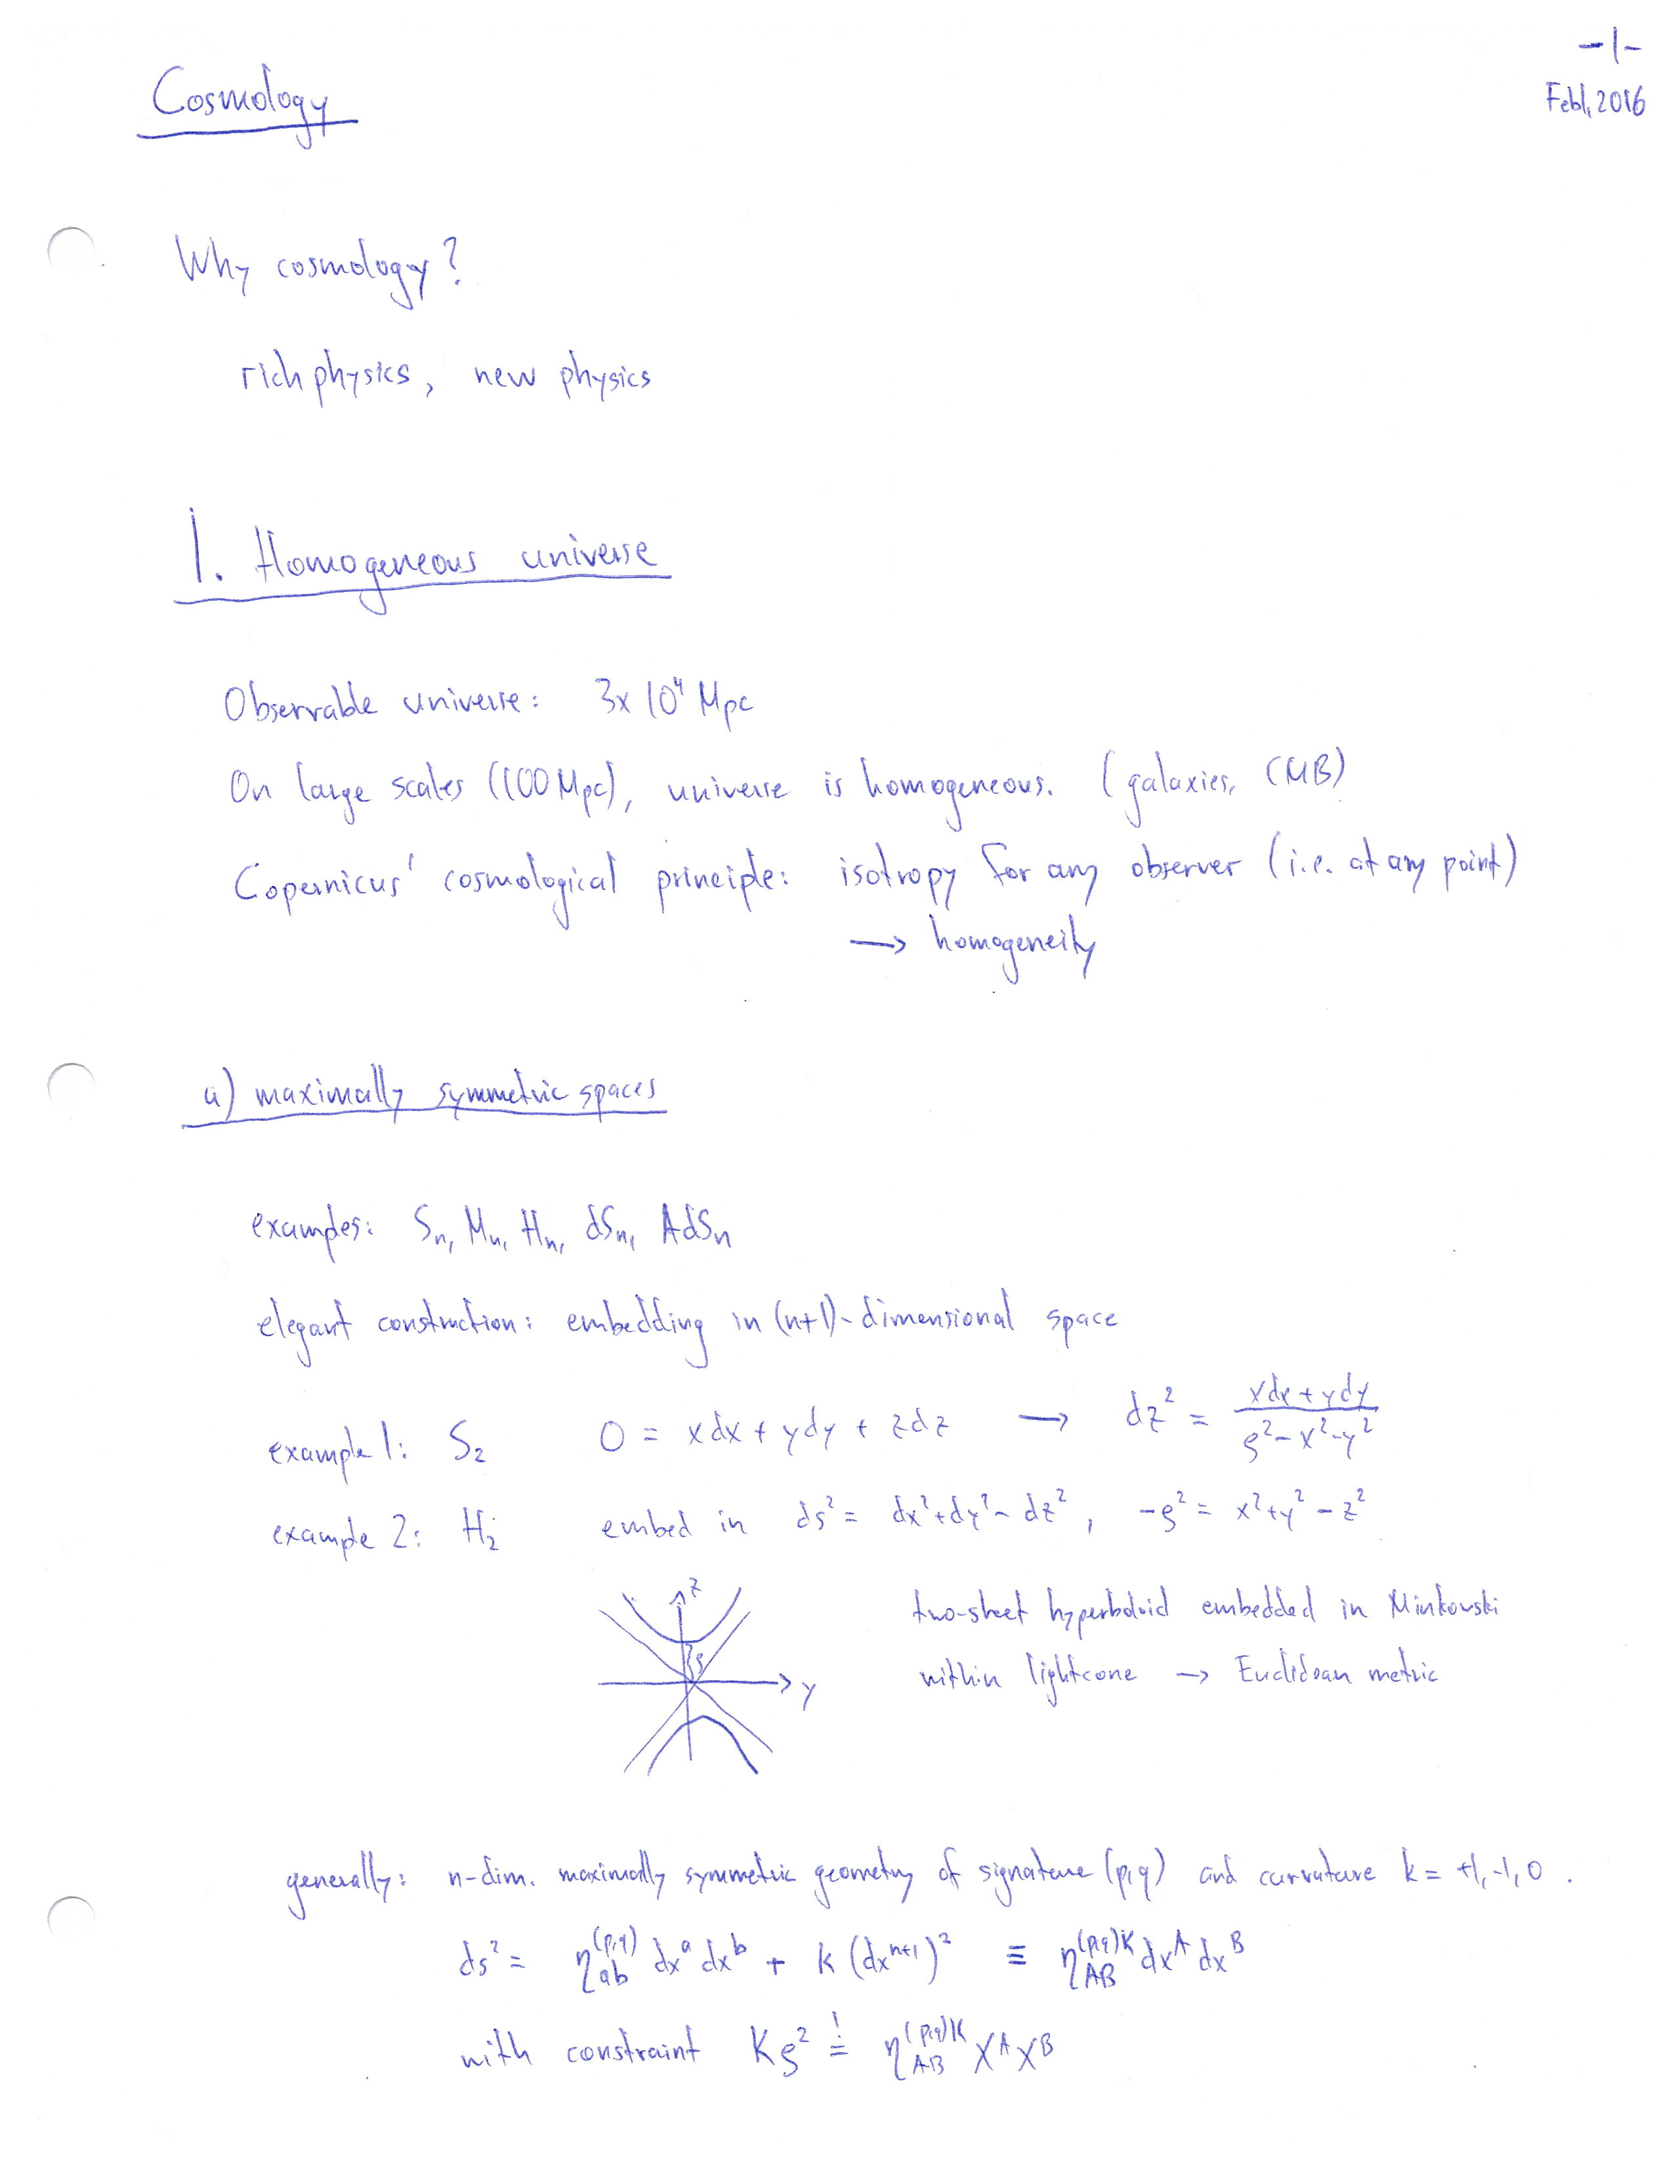 -1-
Cosmology
Feb 1, 2016
Why cosmology?
rich physics, new physics
1. Homogeneous universe
Observable universe: 3x 10⁴ Mpc
On large scales (100 Mpc), universe is homogeneous. (galaxies, CMB)
Copernicus' cosmological principle: isotropy for any observer (i.e. at any point)
→ homogeneity
a) maximally symmetric spaces
examples: Sₙ, Mₙ, Hₙ, dSₙ, AdSₙ
elegant construction: embedding in (n+1)-dimensional space
example 1: S₂ 0 = xdx + ydy + zdz → dz² = (xdx + ydy)/(ϱ²-x²-y²)
example 2: H₂ embed in ds² = dx²+dy²-dz², -ϱ² = x²+y²-z²
z
two-sheet hyperboloid embedded in Minkowski
ϱ
within lightcone → Euclidean metric
y
generally: n-dim. maximally symmetric geometry of signature (p,q) and curvature k = +1,-1,0.
ds² = η_ab^(p,q) dx^a dx^b + k (dx^(n+1))² ≡ η_AB^(p,q)K dx^A dx^B
with constraint Kϱ² =! η_AB^(p,q)K X^A X^B